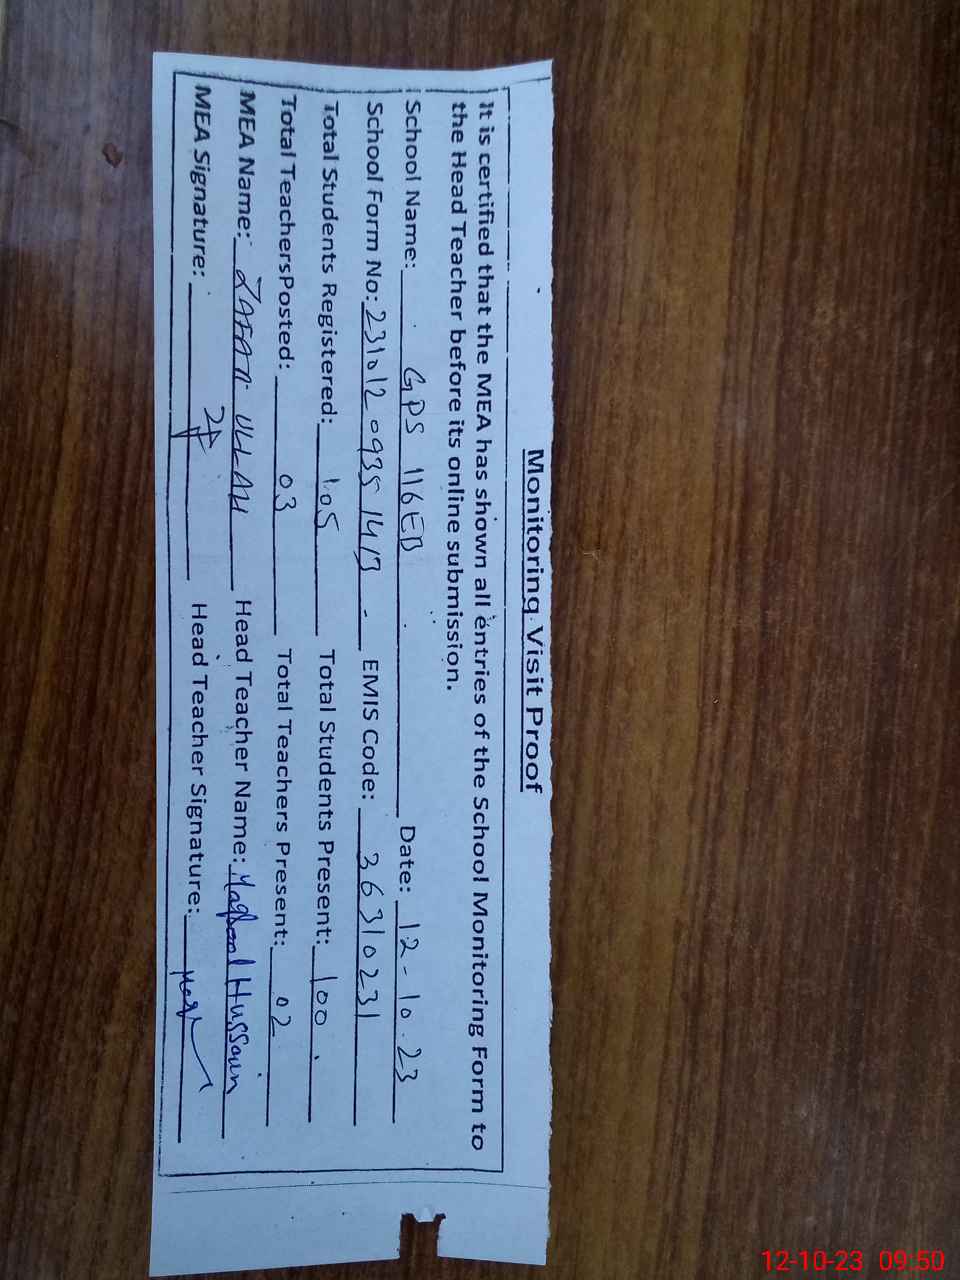 Monitoring Visit Proof
It is certified that the MEA has shown all entries of the School Monitoring Form to
the Head Teacher before its online submission.
School Name: GPS 116EB Date: 12-10-23
School Form No: 23101209351413 - EMIS Code: 36310231
Total Students Registered: 105 Total Students Present: 100
Total TeachersPosted: 03 Total Teachers Present: 02
MEA Name: ZAFAR ULLAH Head Teacher Name: Maqbool Hussain
MEA Signature: Head Teacher Signature:
12-10-23 09:50